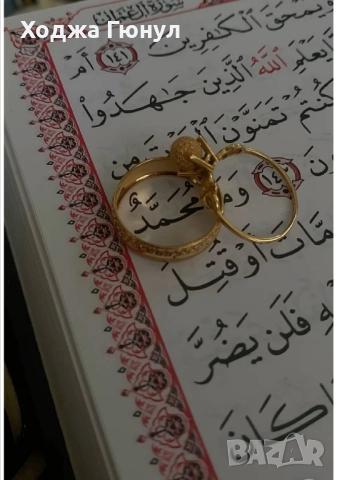 Ходжа Гюнул
سورة آل عمران
وَيَمْحَقَ الْكَافِرِينَ ١٤١ أَمْ
يَعْلَمِ اللَّهُ الَّذِينَ جَاهَدُوا
كُنْتُمْ تَمَنَّوْنَ الْمَوْتَ مِنْ
وَمَا مُحَمَّدٌ
مَّاتَ أَوْ قُتِلَ
فَلَنْ يَضُرَّ
كَانَ
BAZAR
bg